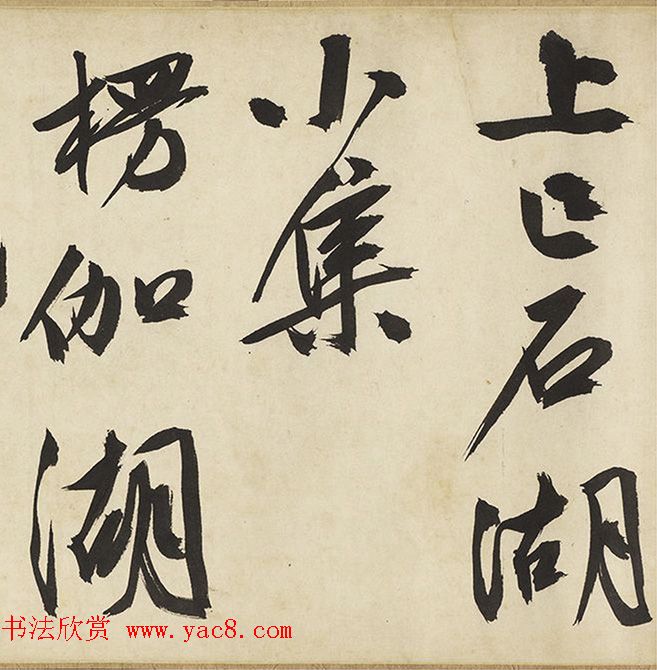 上巳石湖
小集
楞伽湖
书法欣赏 www.yac8.com